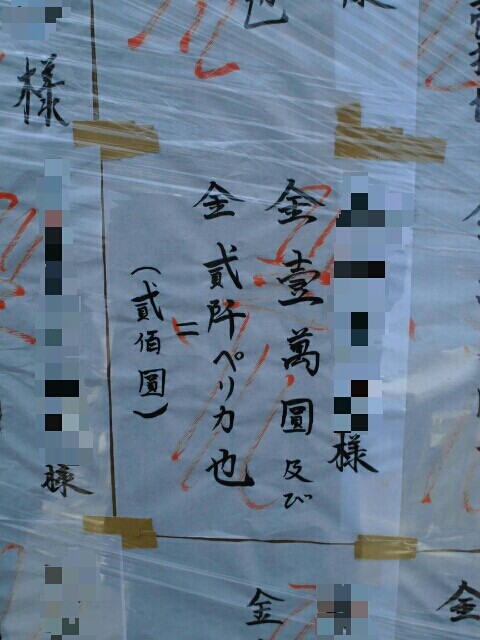 様
金壹萬圓及び
金貳阡ペリカ也
＝
(貳佰圓)
様
様
金
金